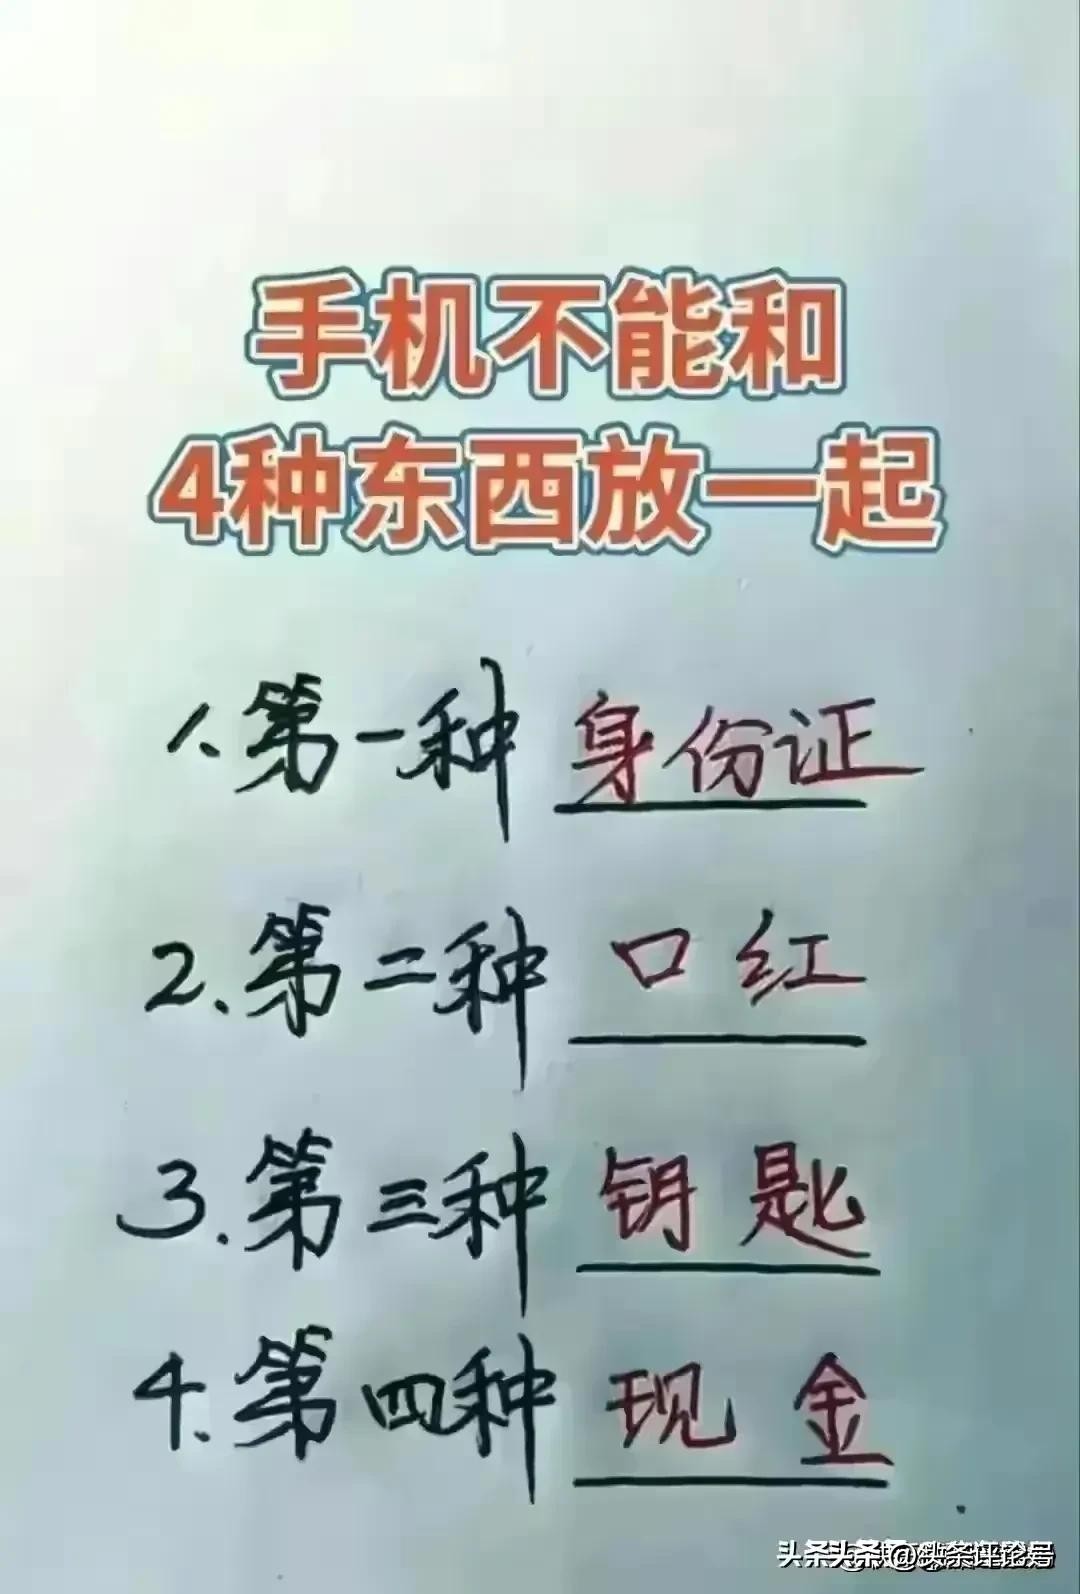 手机不能和
4种东西放一起
1.第一种 身份证
2.第二种 口红
3.第三种 钥匙
4.第四种 现金
头条 @头条评论号